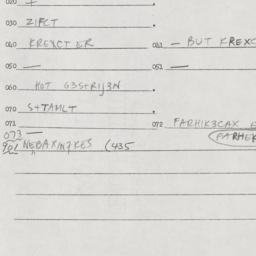 020 +
030 ZIFCT .
040 KREXCT ER 041 — BUT KREXC
050 — 051 —
060 HOT G3STRIJ3N .
070 S+TAMLT .
071 072 FARHIK3CAX
073 — (FARHEK
(435